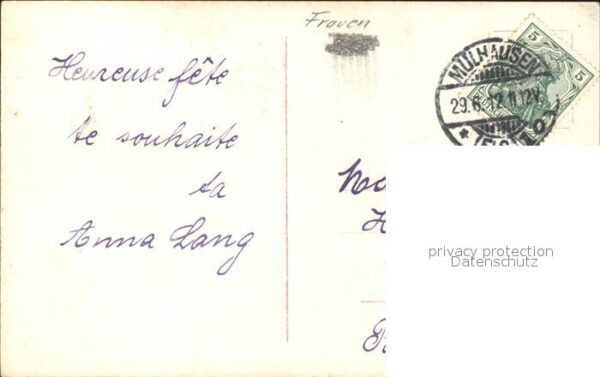 Frauen
Heureuse fête
te souhaite
ta
Anna Lang
5
5
MÜLHAUSEN
29.6.12.11.12V.
privacy protection
Datenschutz